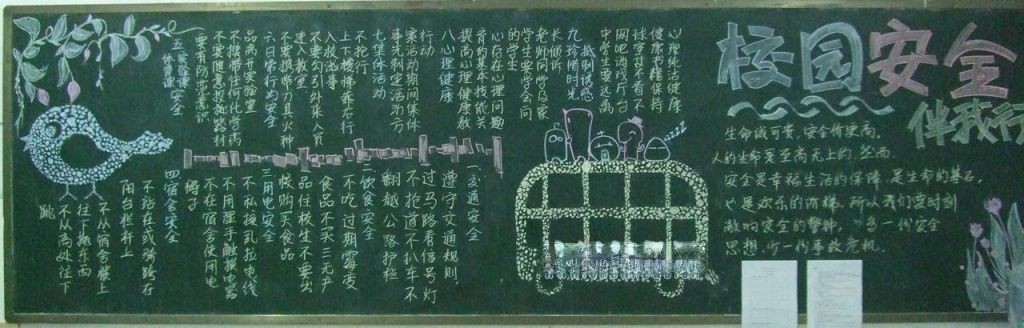 校园安全
伴我行
生命诚可贵，安全价更高，
人的生命是至高无上的。然而，
安全是幸福生活的保障，是生命的基石，
也是欢乐的阶梯。所以我们要时刻
敲响安全的警钟，多一份安全
思想，少一份事故危机。
一、交通安全
遵守交通规则，
过马路看信号灯
不抢道不扒车不
翻越公路护栏
二、饮食安全
不吃过期霉变
食品不买三无产
品住校生不要出
校购买食品
三、用电安全
不私接乱拉电线
不用湿手触摸电器
不在宿舍使用电
四、宿舍安全
不站在或骑跨在
阳台栏杆上
不从宿舍楼上
往下抛东西
不从高处往下
跳
五、实验课
体育课安全
要有防范意识
不随意
不携带任何化学药
品离开实验室
六、日常行为安全
不要携带刀具火种
进入教室
不要勾引外来人员
入校滋事
上下楼梯靠右行
不抢行
七、集体活动
事先制定活动方
案活动期间集体
行动
八、心理健康
提高心理健康教
育的基本技能关
心存在心理问题
的学生
学生要学会向
老师同学及家
长倾诉
九、珍惜时光
抵制诱惑
中学生要远离
网吧游戏厅台
球室等不看不
健康书籍保持
心理纯洁健康
zzz